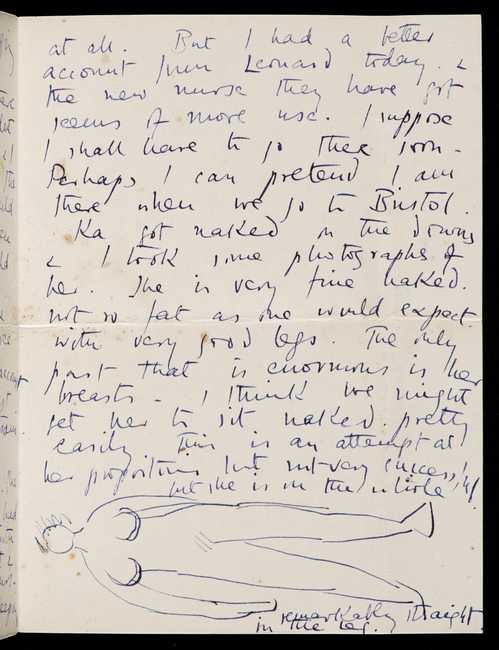 at all. But I had a better
account from Leonard today. &
the new nurse they have got
seems of more use. I suppose
I shall have to go there soon.
Perhaps I can pretend I am
there when we go to Bristol.
Ka got naked on the downs
& I took some photographs of
her. She is very fine naked.
not so fat as one would expect
with very good legs. The only
part that is enormous is her
breasts. I think we might
get her to sit naked pretty
easily this is an attempt at
her proportions but not very successful
but she is on the whole
remarkably straight
in the leg.